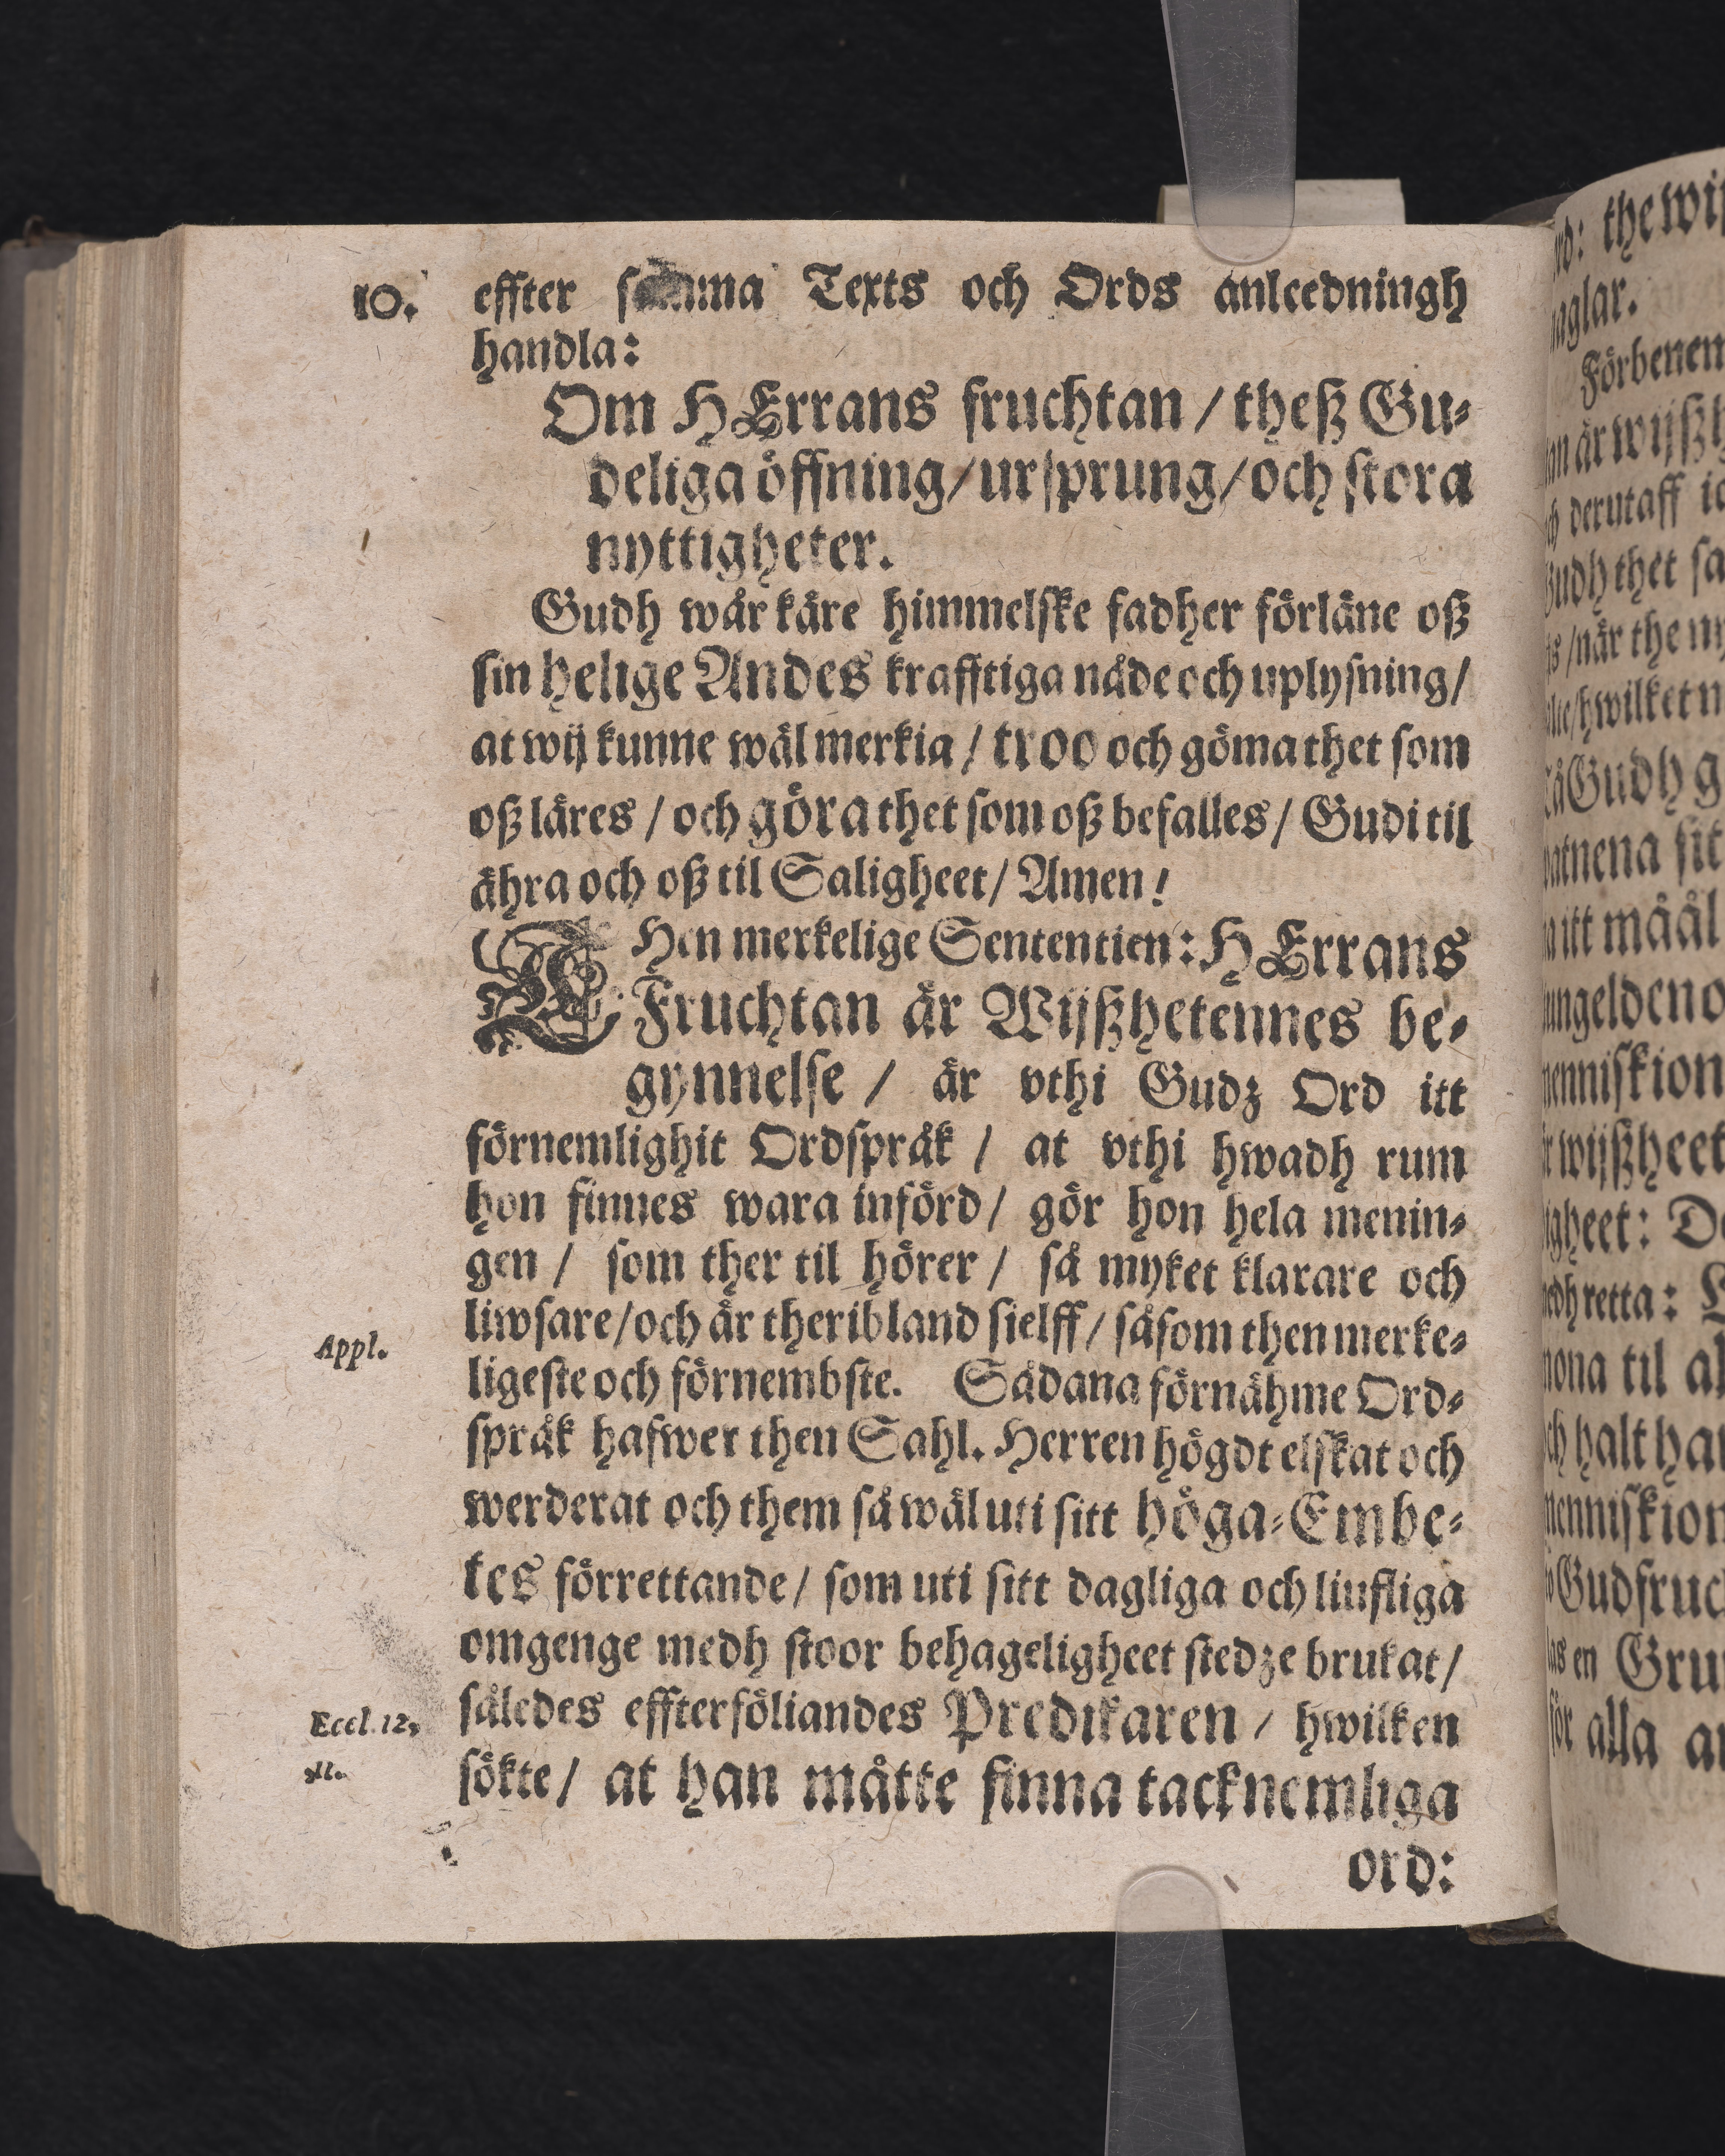 10.
effter samma Texts och Ords anleedningh
handla:
Om HErrans fruchtan / theß Gu-
deliga öffning/ursprung/och stora
nyttigheter.
Gudh wår käre himmelske fadher förläne oß
sin helige Andes krafftiga nåde och uplysning/
at wij kunne wäl merkia / troo och göma thet som
oß läres / och göra thet som oß befalles / Gudi til
ähra och oß til Saligheet / Amen!
THen merkelige Sententien: HErrans
Fruchtan är Wijßhetennes be-
gynnelse / är vthi Gudz Ord itt
förnemlighit Ordspråk / at vthi hwadh rum
hon finnes wara införd / gör hon hela menin-
gen / som ther til hörer / så myket klarare och
liwsare/och är theribland sielff / såsom then merke-
Appl.
ligeste och förnembste. Sådana förnähme Ord-
språk hafwer then Sahl. Herren högdt elskat och
werderat och them så wäl uti sitt höga-Embe-
tes förrettande / som uti sitt dagliga och liufliga
omgenge medh stoor behageligheet stedze brukat /
således effterföliandes Predikaren / hwilken
Eccl. 12,
sökte / at han måtte finna tacknemliga
11.
ord:
rd: the wij
aglar.
Förbenem
derutaff
Gudh g
itt måål
menniskion
wijßheet
igheet:
retta:
nona til al
halt
Gudfruc
en Gru
för alla